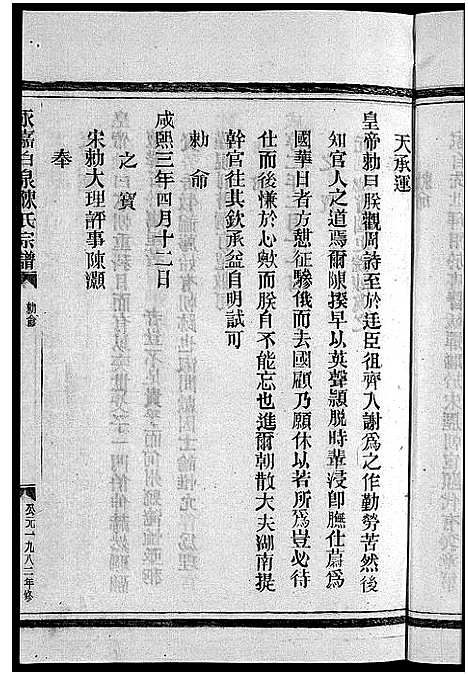 天承運
皇帝勅曰朕觀周詩至於廷臣徂齊入謝為之作勤勞苦然後
知官人之道焉爾陳揆早以英聲頴脫時輩浸卽膴仕蔚為
國華日者方懇征驂俄而去國顧乃願休以若所為豈必待
仕而後慊於心歟而朕自不能忘也進爾朝散大夫湖南提
幹官往其欽承益自明試可
勅命
咸熙三年四月十二日
之寶
宋勅大理評事陳灝
奉
永嘉白泉陳氏宗譜
勅命
公元一九八二年修